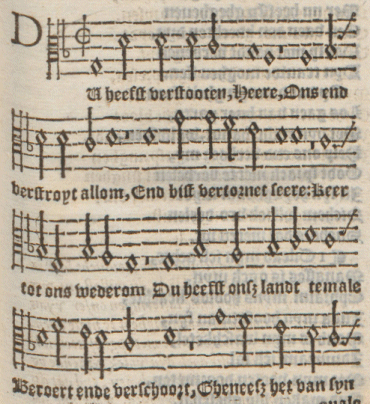 D
U heefst verstooten, Heere, Ons end
verstroyt allom, End bist vertornet seere: Keer
tot ons wederom Du heefst onsz landt temale
Beroert ende verschoozt, Gheneesz het van syn
quale